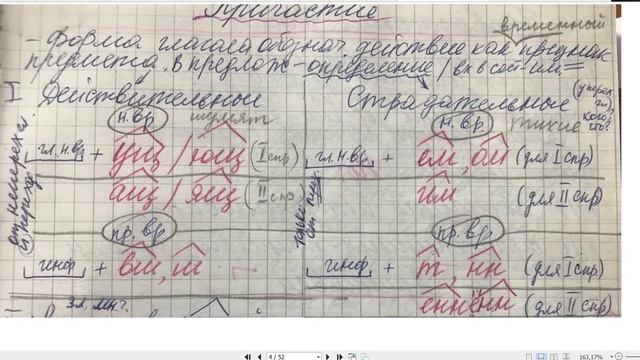 Причастие
временный
- Форма глагола обознач. действие как признак
предмета. В предлож-определение / вх в сост-им=
I Действительные Страдательные (у перех гл? кого? что?)
н.вр. шипят н.вр. тихие
гл. н.вр + ущ / ющ (I спр) гл. н.вр. + ем, ом (для I спр)
ащ / ящ (II спр) им (для II спр)
от неперех.
и перех. гл.
только от пер.
пр. вр. пр. вр
инф + вш, ш инф. + т, нн (для I спр)
енн ённ (для II спр)
3 л. мн. ч.
4 / 52
163,17%